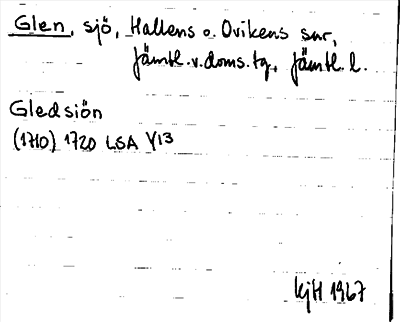 Glen, sjö, Hallens o. Ovikens snr,
Jämtl. v. doms. tg, Jämtl. l.
Gledsiön
(1710) 1720 LSA Y13
kjH 1967